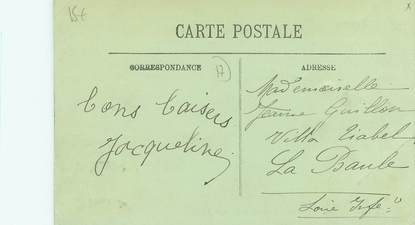 15€
x
CARTE POSTALE
CORRESPONDANCE
17
ADRESSE
Bons Baisers
Jacqueline
Mademoiselle
Jeanne Guillon
Villa
La Baule
Loire Infre